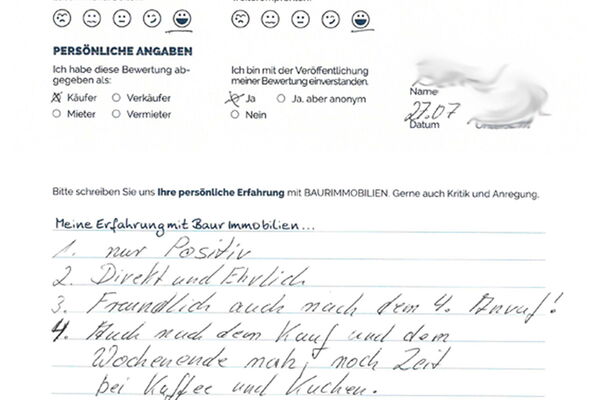 PERSÖNLICHE ANGABEN
Ich habe diese Bewertung ab-
gegeben als:
Käufer Verkäufer
Mieter Vermieter
Ich bin mit der Veröffentlichung
meiner Bewertung einverstanden.
Ja Ja, aber anonym
Nein
Name
27.07
Datum
Bitte schreiben Sie uns Ihre persönliche Erfahrung mit BAURIMMOBILIEN. Gerne auch Kritik und Anregung.
Meine Erfahrung mit Baur Immobilien...
1. nur Positiv
2. Direkt und Ehrlich
3. Freundlich auch nach dem 4. Anruf!
4. Auch nach dem Kauf und dem
Wochenende noch
bei Kaffee und Kuchen.